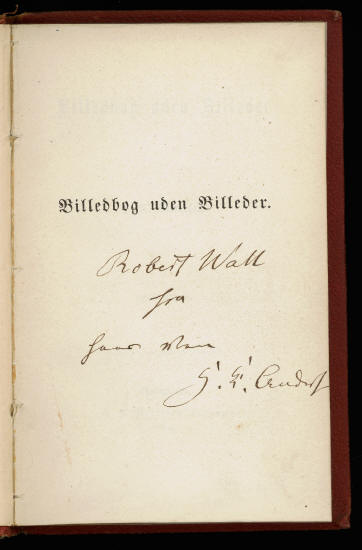 Billedbog uden Billeder.
Robert Watt
fra
hans Ven
H. C. Andersen